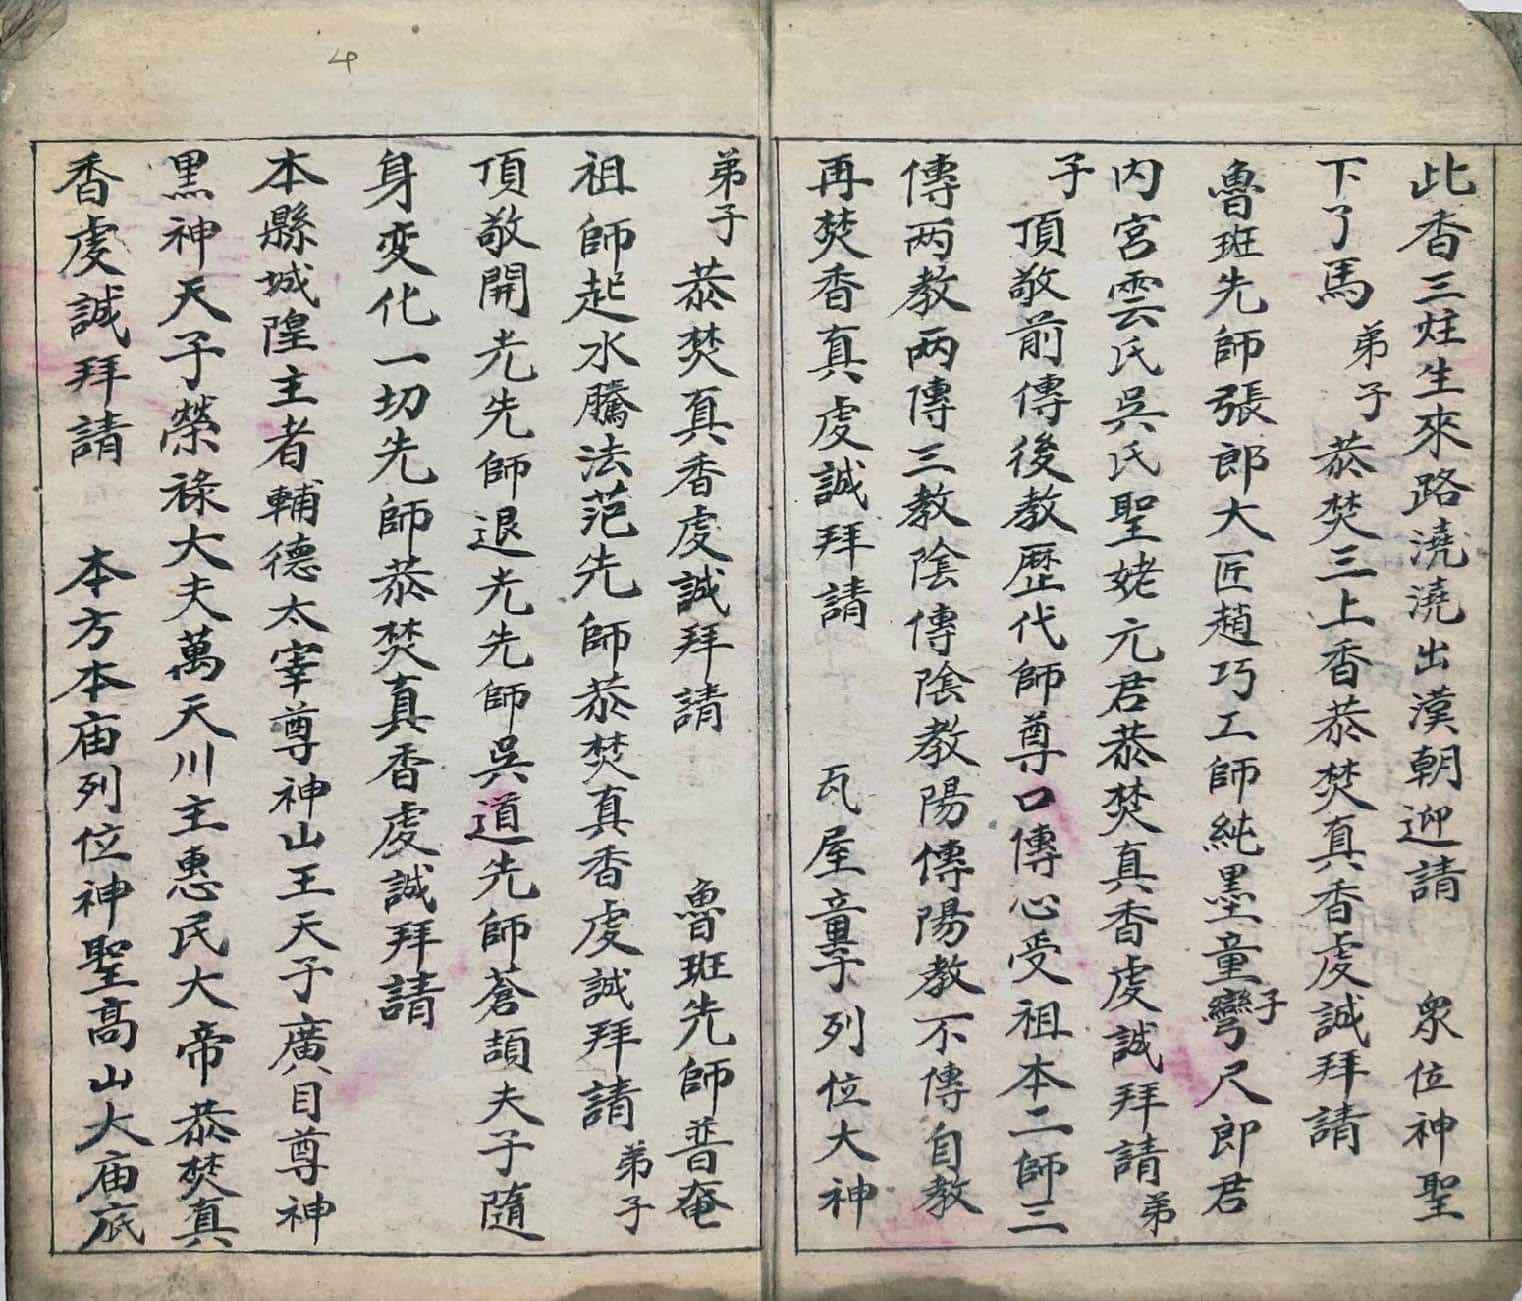 此香三炷生來路澆澆出漢朝迎請　衆位神聖
下了馬 弟子 恭焚三上香恭焚真香虔誠拜請
魯班先師張郎大匠趙巧工師純墨童子彎尺郎君
内宮雲氏吳氏聖姥元君恭焚真香虔誠拜請 弟
子　頂敬前傳後教歷代師尊口傳心受祖本二師三
傳两教两傳三教陰傳陰教陽傳陽教不傳自教
再焚香真虔誠拜請　瓦屋童子列位大神
弟子　恭焚真香虔誠拜請　魯班先師普奄
祖師起水騰法范先師恭焚真香虔誠拜請 弟子
頂敬開光先師退光先師吳道先師蒼頡夫子隨
身变化一切先師恭焚真香虔誠拜請
本縣城隍主者輔德太宰尊神山王天子廣目尊神
黑神天子榮祿大夫萬天川主惠民大帝恭焚真
香虔誠拜請　本方本庙列位神聖高山大庙底
4